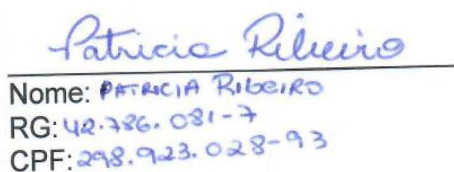 Patricia Ribeiro
Nome: PATRICIA RIBEIRO
RG: 42.786.081-7
CPF: 298.923.028-93